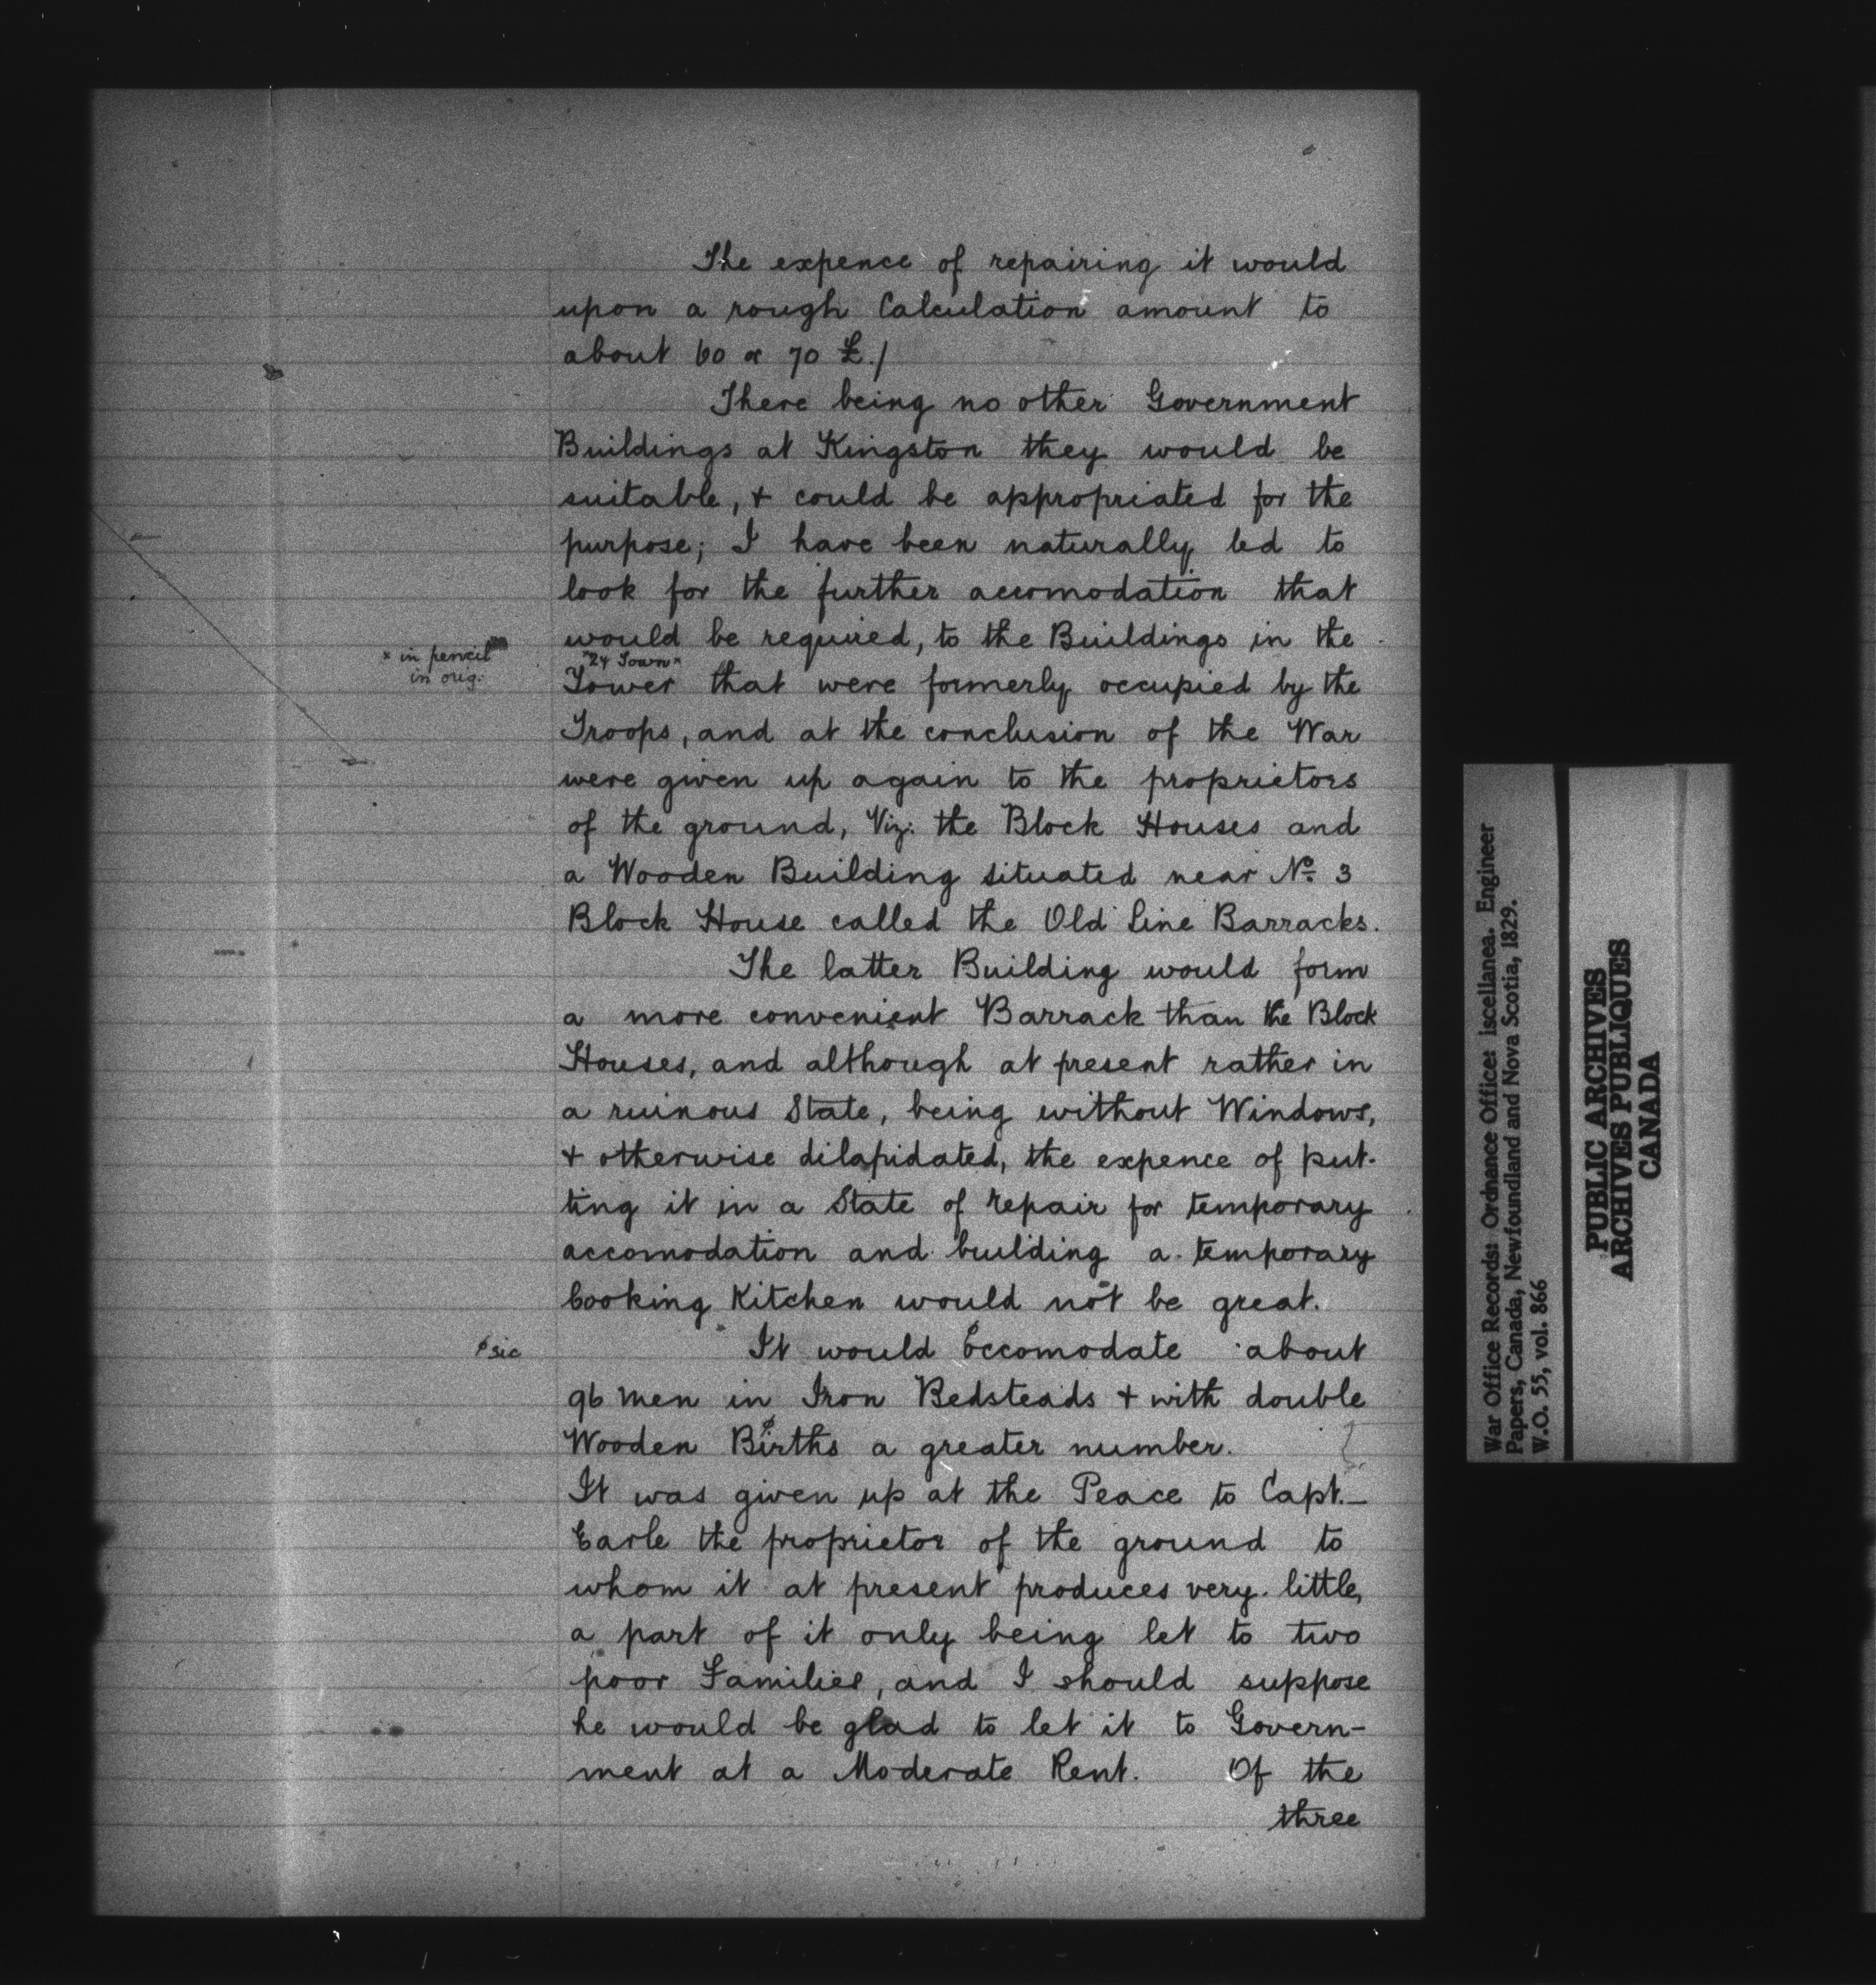 The expence of repairing it would
upon a rough Calculation amount to
about 60 or 70 £./
There being no other Government
Buildings at Kingston they would be
suitable, + could be appropriated for the
purpose; I have been naturally led to
look for the further accomodation that
would be required, to the Buildings in the
× in pencil
in orig.
Tower that were formerly occupied by the
Troops, and at the conclusion of the War
were given up again to the proprietors
of the ground, Viz: the Block Houses and
a Wooden Building situated near No. 3
Block House called the Old Line Barracks.
The latter Building would form
a more convenient Barrack than the Block
Houses, and although at present rather in
a ruinous State, being without Windows,
+ otherwise dilapidated, the expence of put-
ting it in a State of repair for temporary
accomodation and building a temporary
Cooking Kitchen would not be great.
sic
It would occomodate about
96 men in Iron Bedsteads + with double
Wooden Births a greater number.
It was given up at the Peace to Capt.
Earle the proprietor of the ground to
whom it at present produces very little,
a part of it only being let to two
poor Families, and I should suppose
he would be glad to let it to Govern-
ment at a Moderate Rent. Of the
three
War Office Records: Ordnance Office: iscellanea. Engineer
Papers, Canada, Newfoundland and Nova Scotia, 1829.
W.O. 55, vol. 866
PUBLIC ARCHIVES
ARCHIVES PUBLIQUES
CANADA